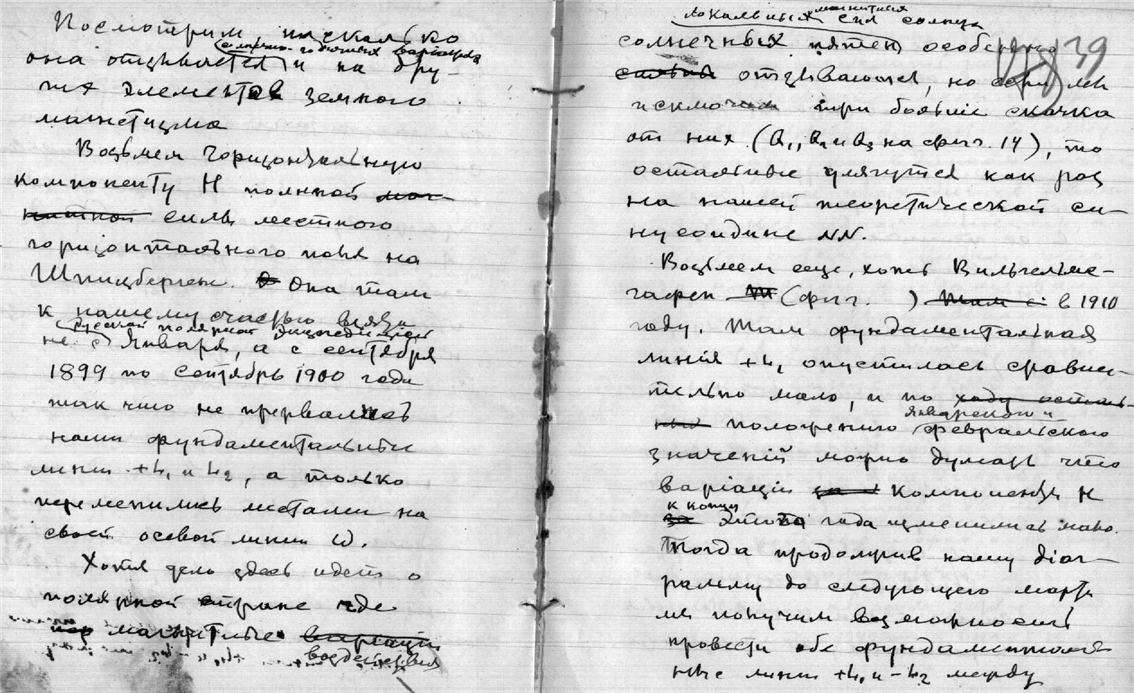 Посмотрим насколько
солнечно-годичная вариація
она отзывается и на дру-
гих элементов земного
магнетизма
Возьмем горизонтальную
компоненту H полной маг-
нитной силы местного
горизонтального поля на
Шпицбергене. Она там
к нашему счастью взята
русской полярной экспедицией
не с Января, а с сентября
1899 по сентябрь 1900 года
так что не прервались
наши фундаментальные
линии +L₁ и L₂, а только
переменились местами на
своей осевой линии ω.
Хотя дело здесь идет о
полярной стране где
магнитные вариаціи
воздействия
локальных магнитных сил солнца
солнечных пятен особенно
сильно отзываются, но если мы
исключим три большіе скачка
от них (B₁, B₂ и B₃ на фиг. 14), то
остальные улягутся как раз
на нашей теоретической си-
нусоидине NN.
Возьмем еще, хоть Вильгельмс-
гафен (фиг. ) там в 1910
году. Там фундаментальная
линія +L₁ опустилась сравни-
тельно мало, и по ходу осталь-
ных январского и
положению февральского
значеній можно думать что
варіаціи компоненты H
к концу
этого года изменились мало.
Тогда продолжив нашу діаг-
рамму до следующего марта
мы получим возможность
провести обе фундаменталь-
ные линии +L₁ и −L₂ между